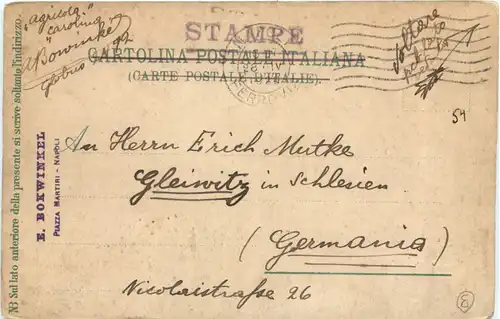 "agricola"
Carolina
E. Bowinkel
STAMPE
CARTOLINA POSTALE ITALIANA
(CARTE POSTALE D'ITALIE).
FERROVIA
Voltare
54
NB Sul lato anteriore della presente si scrive soltanto l'indirizzo.
E. BOWINKEL
PIAZZA MARTIRI - NAPOLI
An Herrn Erich Mutke
Gleiwitz in Schlesien
(Germania)
Nicolaistraße 26